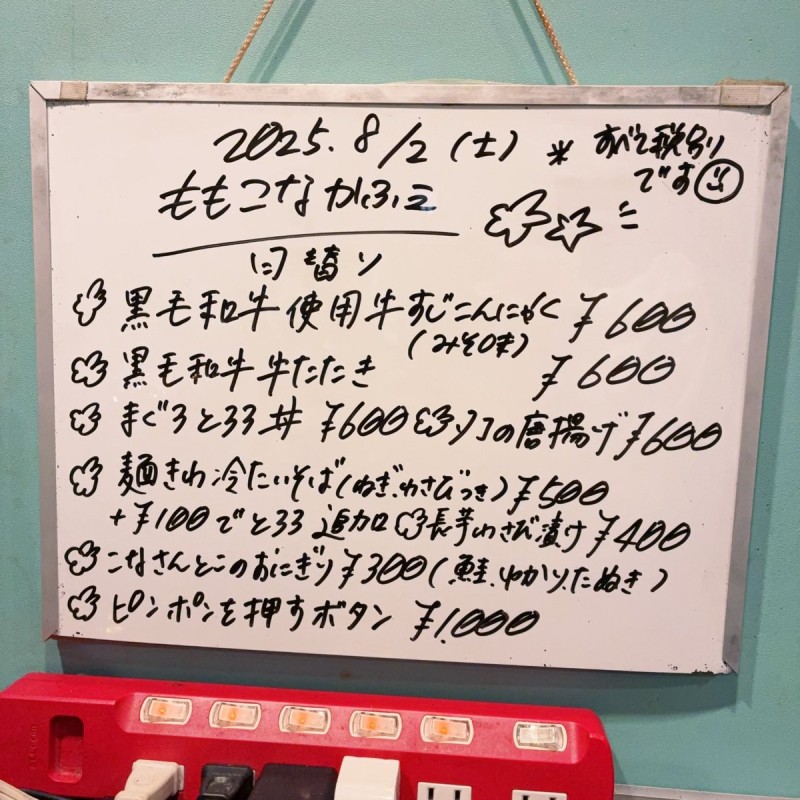 2025.8/2(土) ＊すべて税別り
です
ももこなかふぇ
日替り
黒毛和牛使用牛すじこんにゃく ¥600
(みそ味)
黒毛和牛牛たたき ¥600
まぐろとろろ丼 ¥600 タコの唐揚げ ¥600
麺きわ冷たいそば(ねぎ、わさびつき) ¥500
+¥100でとろろ追加 長芋わさび漬け ¥400
こなさんとこのおにぎり ¥300(鮭、ゆかり、たぬき)
ピンポンを押すボタン ¥1,000